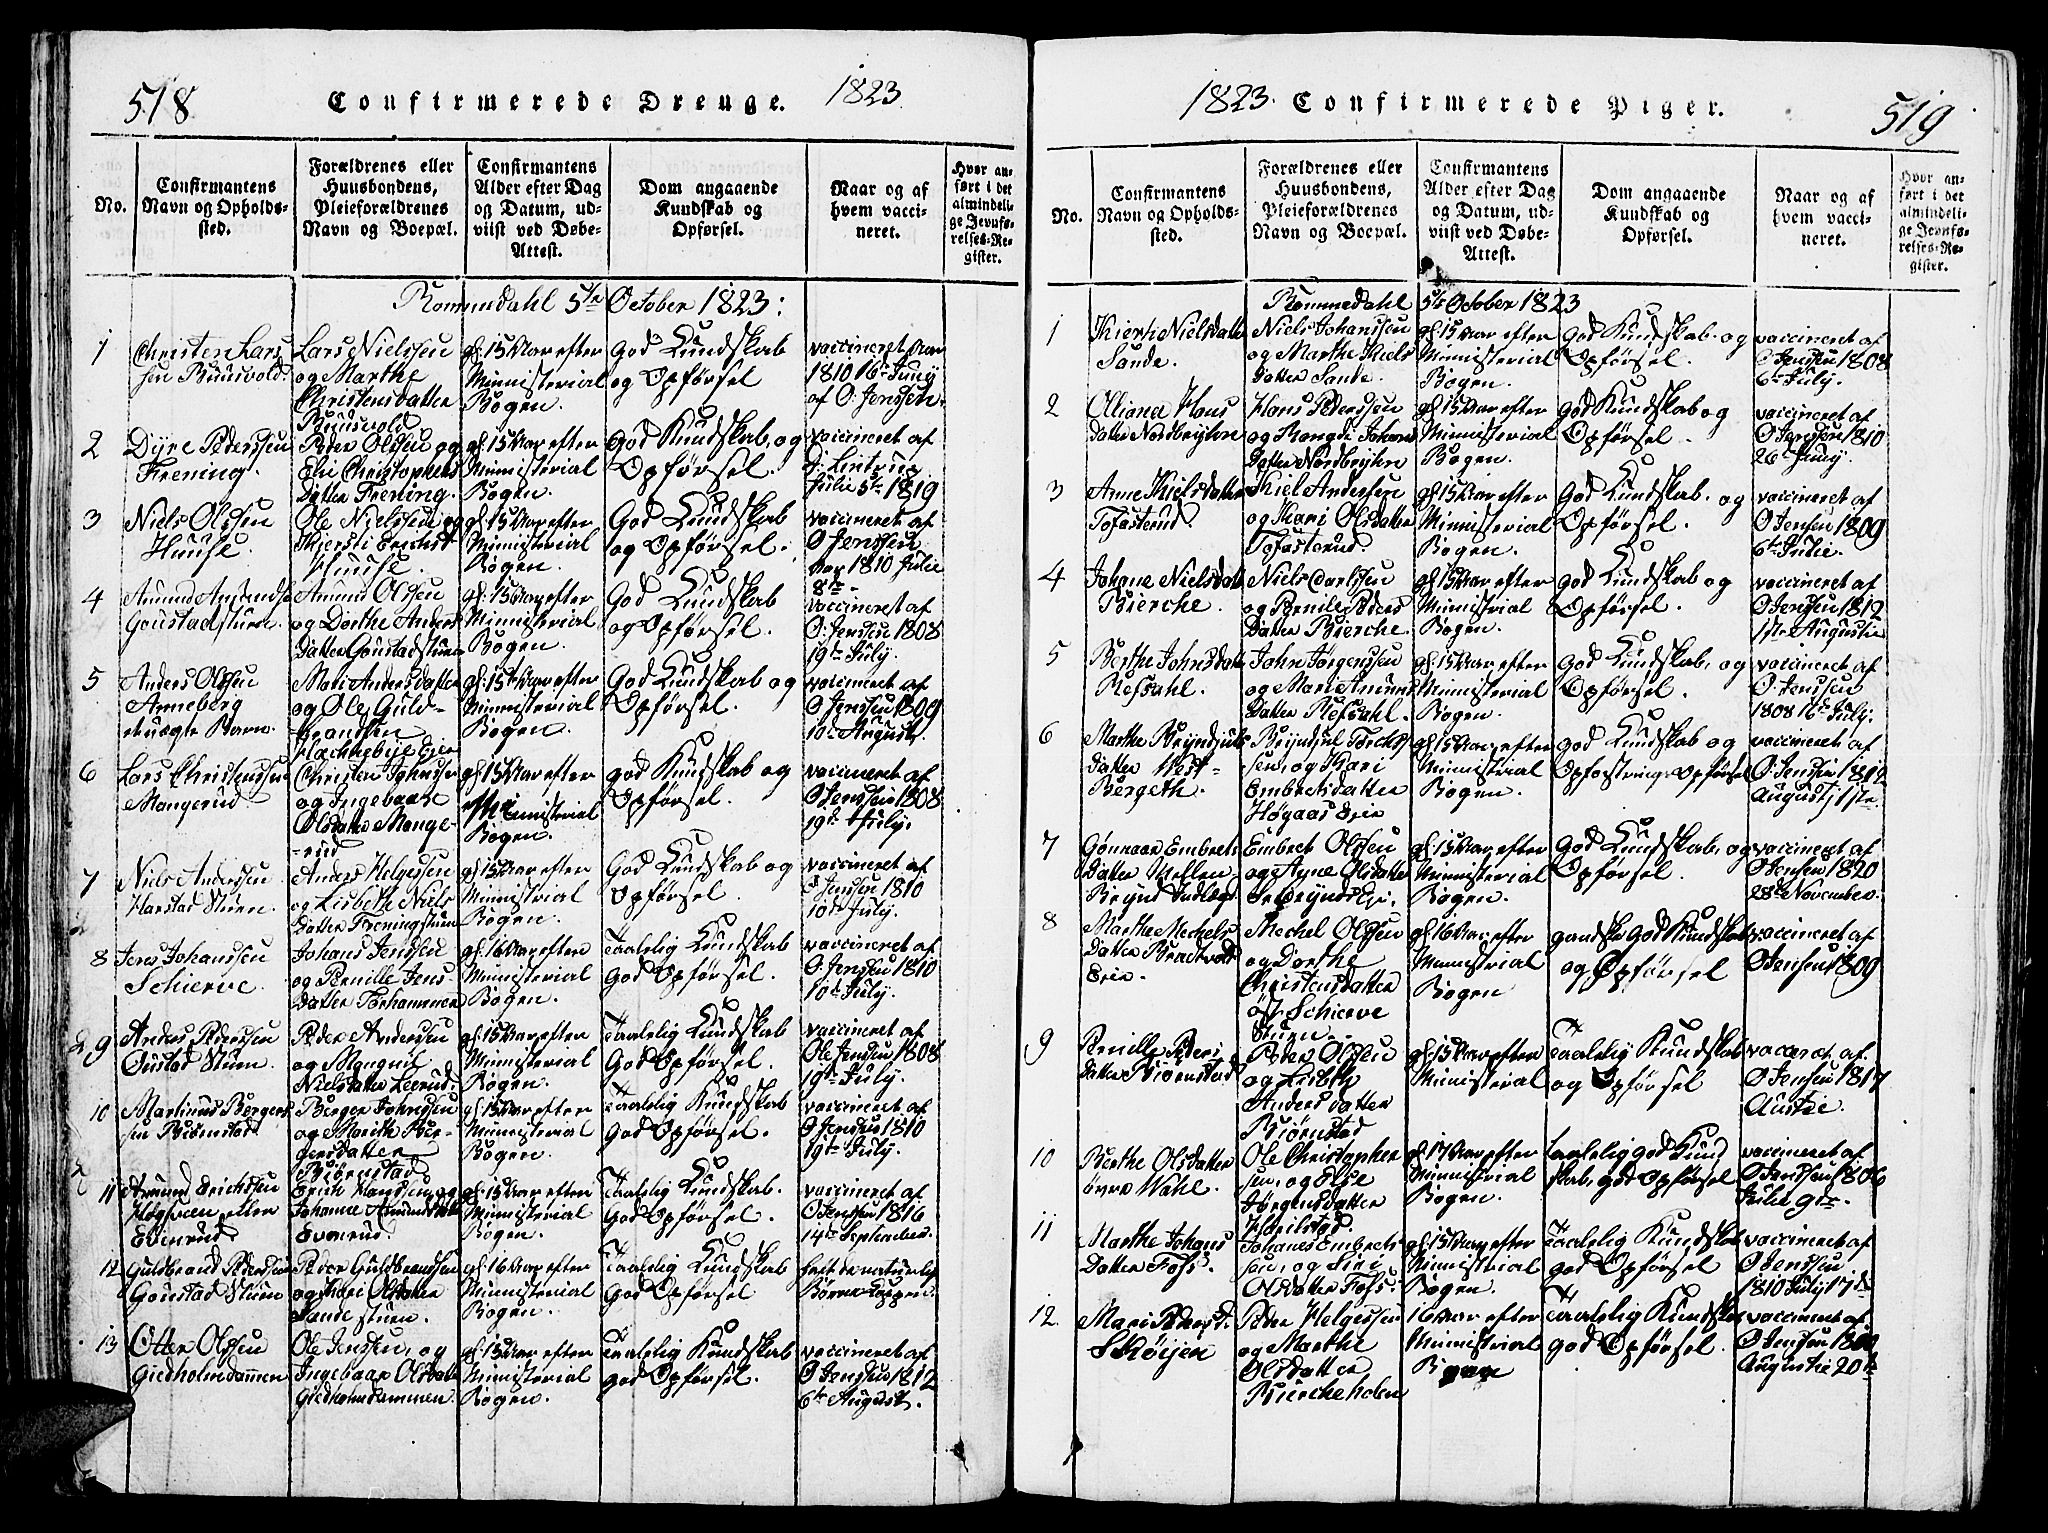 518
Confirmerede Drenge.
1823
No.
Confirmantens
Navn og Opholds-
sted.
Forældrenes eller
Huusbondens,
Pleieforældrenes
Navn og Boepæl.
Confirmantens
Alder efter Dag
og Datum, ud-
viist ved Døbe-
Attest.
Dom angaaende
Kundskab og
Opførsel.
Naar og af
hvem vacci-
neret.
Hvor an-
ført i det
almindeli-
ge Jevnfø-
relses-Re-
gister.
Rommedahl 5te October 1823:
1
Christen Lars
sen Ruusvold.
Lars Nielssen
og Marthe
Christensdatter
Ruusvold
gl. 15 Aar efter
Ministerial
Bogen.
God Kundskab
og Opførsel
vaccineret Aar
1810 16 Juny
af O. Jenssen.
2
Dyre Pederssen
Frening.
Peder Olssen og
Eli Christophers
Datter Frening.
gl. 15 Aar efter
Ministerial
Bogen.
God Kundskab, og
Opførsel.
vaccineret af
Julie 5te 1819
3
Niels Olssen
Huuse.
Ole Nielssen og
Huuse.
gl. 15 Aar efter
Ministerial
Bogen.
God Kundskab
og Opførsel.
vaccineret af
O Jenssen
1810 Julie
8de
4
Amund
Amund Olssen
og Dorthe Anders
Datter Goustadstuen
gl. 15 Aar efter
Ministerial
Bogen.
God Kundskab
og Opførsel.
vaccineret af
O. Jenssen 1808
19de July.
5
Anders Olssen
Anneberg
uægte Barn.
Mari Andersdatter
og Ole Guld-
brandsen
gl. 15 Aar efter
Ministerial
Bogen.
God Kundskab og
Opførsel.
vaccineret af
O Jenssen 1809
10de August.
6
Lars Christenssen
Mangerud
Christen Johnssen
og Ingebaar
Olsdatter Mange-
rud
gl. 15 Aar efter
Ministerial
Bogen.
god Kundskab og
Opførsel.
vaccineret af
O Jenssen 1808
19de July.
7
Niels Anderssen
Harstad Stuen.
Anders Helgessen
og Lisbethe Niels
Datter Freningstuen
gl. 15 Aar efter
Ministerial
Bogen.
God Kundskab og
Opførsel.
vaccineret af
O Jenssen 1810
10de July.
8
Jens Johanssen
Schierve.
Johans Jenssen
og Pernille Jens
Datter Torhammer
gl. 16 Aar efter
Ministerial
Bogen.
Taalelig Kundskab
God Opførsel.
vaccineret af
O. Jenssen 1810
10de July.
9
Anders Pederssen
Oustad Stuen.
Peder Anderssen
og
Nielsdatter Leerud.
gl. 15 Aar efter
Ministerial
Bogen.
Taalelig Kundskab
God Opførsel.
vaccineret af
Ole Jenssen 1808
19de July.
10
Martinus Bergers
sen Biørnstad
Berger Johnssen
og Marith Ber-
gersdatter
Biørnstad
gl. 15 Aar efter
Ministerial
Bogen.
Taalelig Kundskab
God Opførsel.
vaccineret af
O Jenssen 1810
19de July.
11
Amund Erichssen
Evenrud
Erich Hanssen, og
Johanne Amundsdatter
Evenrud
gl. 15 Aar efter
Ministerial
Bogen.
Taalelig Kundskab.
God Opførsel.
vaccineret af
O Jenssen 1816
14de September.
12
Guldbrand Pederssen
Goustad Stuen
Peder Guldbrandsen
og Kari Olsdatter
Sande stuen.
gl. 16 Aar efter
Ministerial
Bogen.
Taalelig Kundskab
God Opførsel
haft de naturlige
Børne Kopper.
13
Otter Olssen
Giedholmdammen
Ole Jenssen, og
Ingebaar Olsdatter
Giedholmdammen.
gl. 15 Aar efter
Ministerial
Bogen.
Taalelig Kundskab
god Opførsel.
vaccineret af
O Jenssen 1812
6te August.
1823.
Confirmerede Piger.
519
No.
Confirmantens
Navn og Opholds-
sted.
Forældrenes eller
Huusbondens,
Pleieforældrenes
Navn og Boepæl.
Confirmantens
Alder efter Dag
og Datum, ud-
viist ved Døbe-
Attest.
Dom angaaende
Kundskab og
Opførsel.
Naar og af
hvem vacci-
neret.
Hvor an-
ført i det
almindeli-
ge Jevnfø-
relses-Re-
gister.
Rommedahl 5te October 1823
1
Kiersti Nielsdatter
Sande.
Niels Johanssen
og Marthe Kiels
Datter Sande.
gl. 15 Aar efter
Ministerial
Bogen.
God Kundskab. og
Opførsel.
vaccineret af
O Jenssen 1808
6te July.
2
Olliana Hans
Datter Nordbryhn
Hans Pederssen
og Johans
Datter Nordbryhn
gl. 15 Aar efter
Ministerial
Bogen.
God Kundskab og
Opførsel.
vaccineret af
O Jenssen 1810
26de Juny.
3
Anne Kielsdatter
Tofasterud.
Kiel Andersen
og Kari Olsdatter
Tofasterud.
gl. 15 Aar efter
Ministerial
Bogen.
God Kundskab. og
Opførsel.
vaccineret af
O Jenssen 1809
6te Julie.
4
Johane Nielsdatt
Bierche.
Niels Carlssen
og Pernile Peders
Datter Bierche.
gl. 15 Aar efter
Ministerial
Bogen.
God Kundskab og
Opførsel.
vaccineret af
O Jenssen 1812
1ste Augustie
5
Berthe Johnsdatter
Refsahl.
John Jørgenssen
og Mari Amunds
Datter Refsahl.
gl. 15 Aar efter
Ministerial
Bogen.
God Kundskab, og
Opførsel.
vaccineret af
O. Jenssen
1808 16de July.
6
Marthe Bryndjuls
Datter Vest-
Bergeth.
Bryndjul
sen, og Kari
Embretsdatter
Høgaas Eier
gl. 15 Aar efter
Ministerial
Bogen.
God Kundskab og
Opfostrings Opførsel
vaccineret af
O Jenssen 1812
Augustj 1ste.
7
Gønnaar Embrets
Datter Mellem
Embret Olssen
og Agne Olsdatter
gl. 15 Aar efter
Ministerial
Bogen.
God Kundskab, og
Opførsel.
vaccineret af
O Jenssen 1820
28de November.
8
Marthe Mechels
Datter Braatvold
Eier.
Mechel Olssen
og Dorthe
Christensdatter
øst Schierve
Stuen.
gl. 16 Aar efter
Ministerial
Bogen
gandske God Kundskab
og Opførsel
vaccineret af
O Jenssen 1809
9
Pernille Peders
datter Biørnstad
Peder Olssen
og Lisbth
Anders datter
Biørnstad
gl. 15 Aar efter
Ministerial
Taalelig Kundskab
og Opførsel
vacceret af
O Jenssen 1817
10
Berthe Olsdatter
øvre Wahl.
Ole Christopher
sen, og Else
Jørgensdatter
gl. 17 Aar efter
Ministerial
Bogen
taalelig god Kund
skab, god Opførsel
vaccineret af
O Jenssen 1806
Julie 9de
11
Marthe Johans
Datter Fofs.
Johanes Embrets-
sen, og Siri
Olsdatter Fofs.
gl. 15 Aar efter
Ministerial
Bogen.
Taalelig Kundskab
god Opførsel
vaccineret af
O Jenssen
1810 July 17de
12.
Mari Pedersd.
Skøijen
Peder Helgessen
og Marthe
Olsdatter
Biercheholen
16 Aar efter
Ministerial
Bogen
Taalelig Kundskab
god Opførsel.
vaccineret af
O Jenssen
Augustie 20de